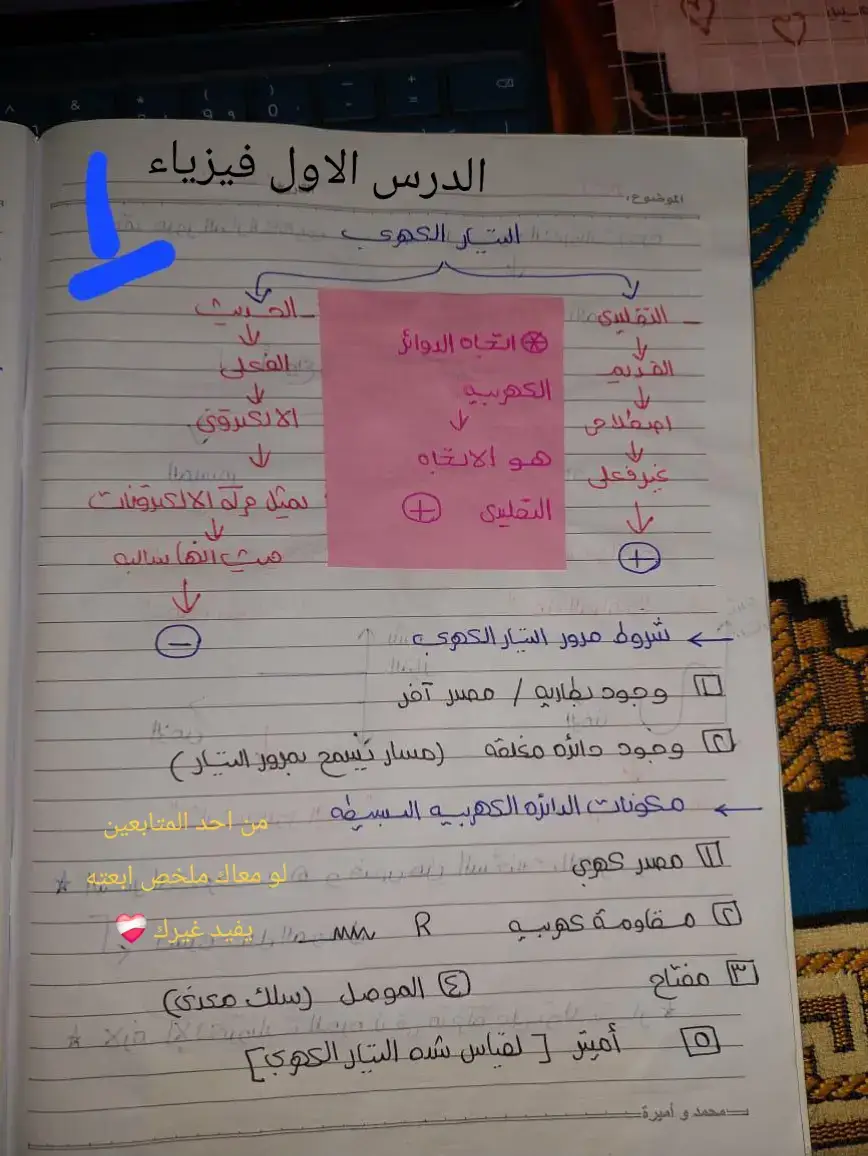 الدرس الاول فيزياء
الموضوع:
التيار الكهربي
_ التقليدي
↓
القديم
↓
اصطلاحي
↓
غير فعلي
↓
+
اتجاه الدوائر
الكهربيه
↓
هو الاتجاه
التقليدي +
_ الحديث
↓
الفعلي
↓
الالكتروني
↓
يمثل حركة الالكترونات
↓
حيث انها سالبه
↓
−
← شروط مرور التيار الكهربي
١ وجود بطاريه / مصدر آخر
٢ وجود دائره مغلقه (مسار يسمح بمرور التيار)
← مكونات الدائره الكهربيه البسيطه
١ مصدر كهربي
٢ مقاومة كهربيه R
٣ مفتاح ٤ الموصل (سلك معدني)
٥ أميتر [لقياس شده التيار الكهربي]
من احد المتابعين
لو معاك ملخص ابعته
يفيد غيرك ❤️‍🩹
محمد و أميرة